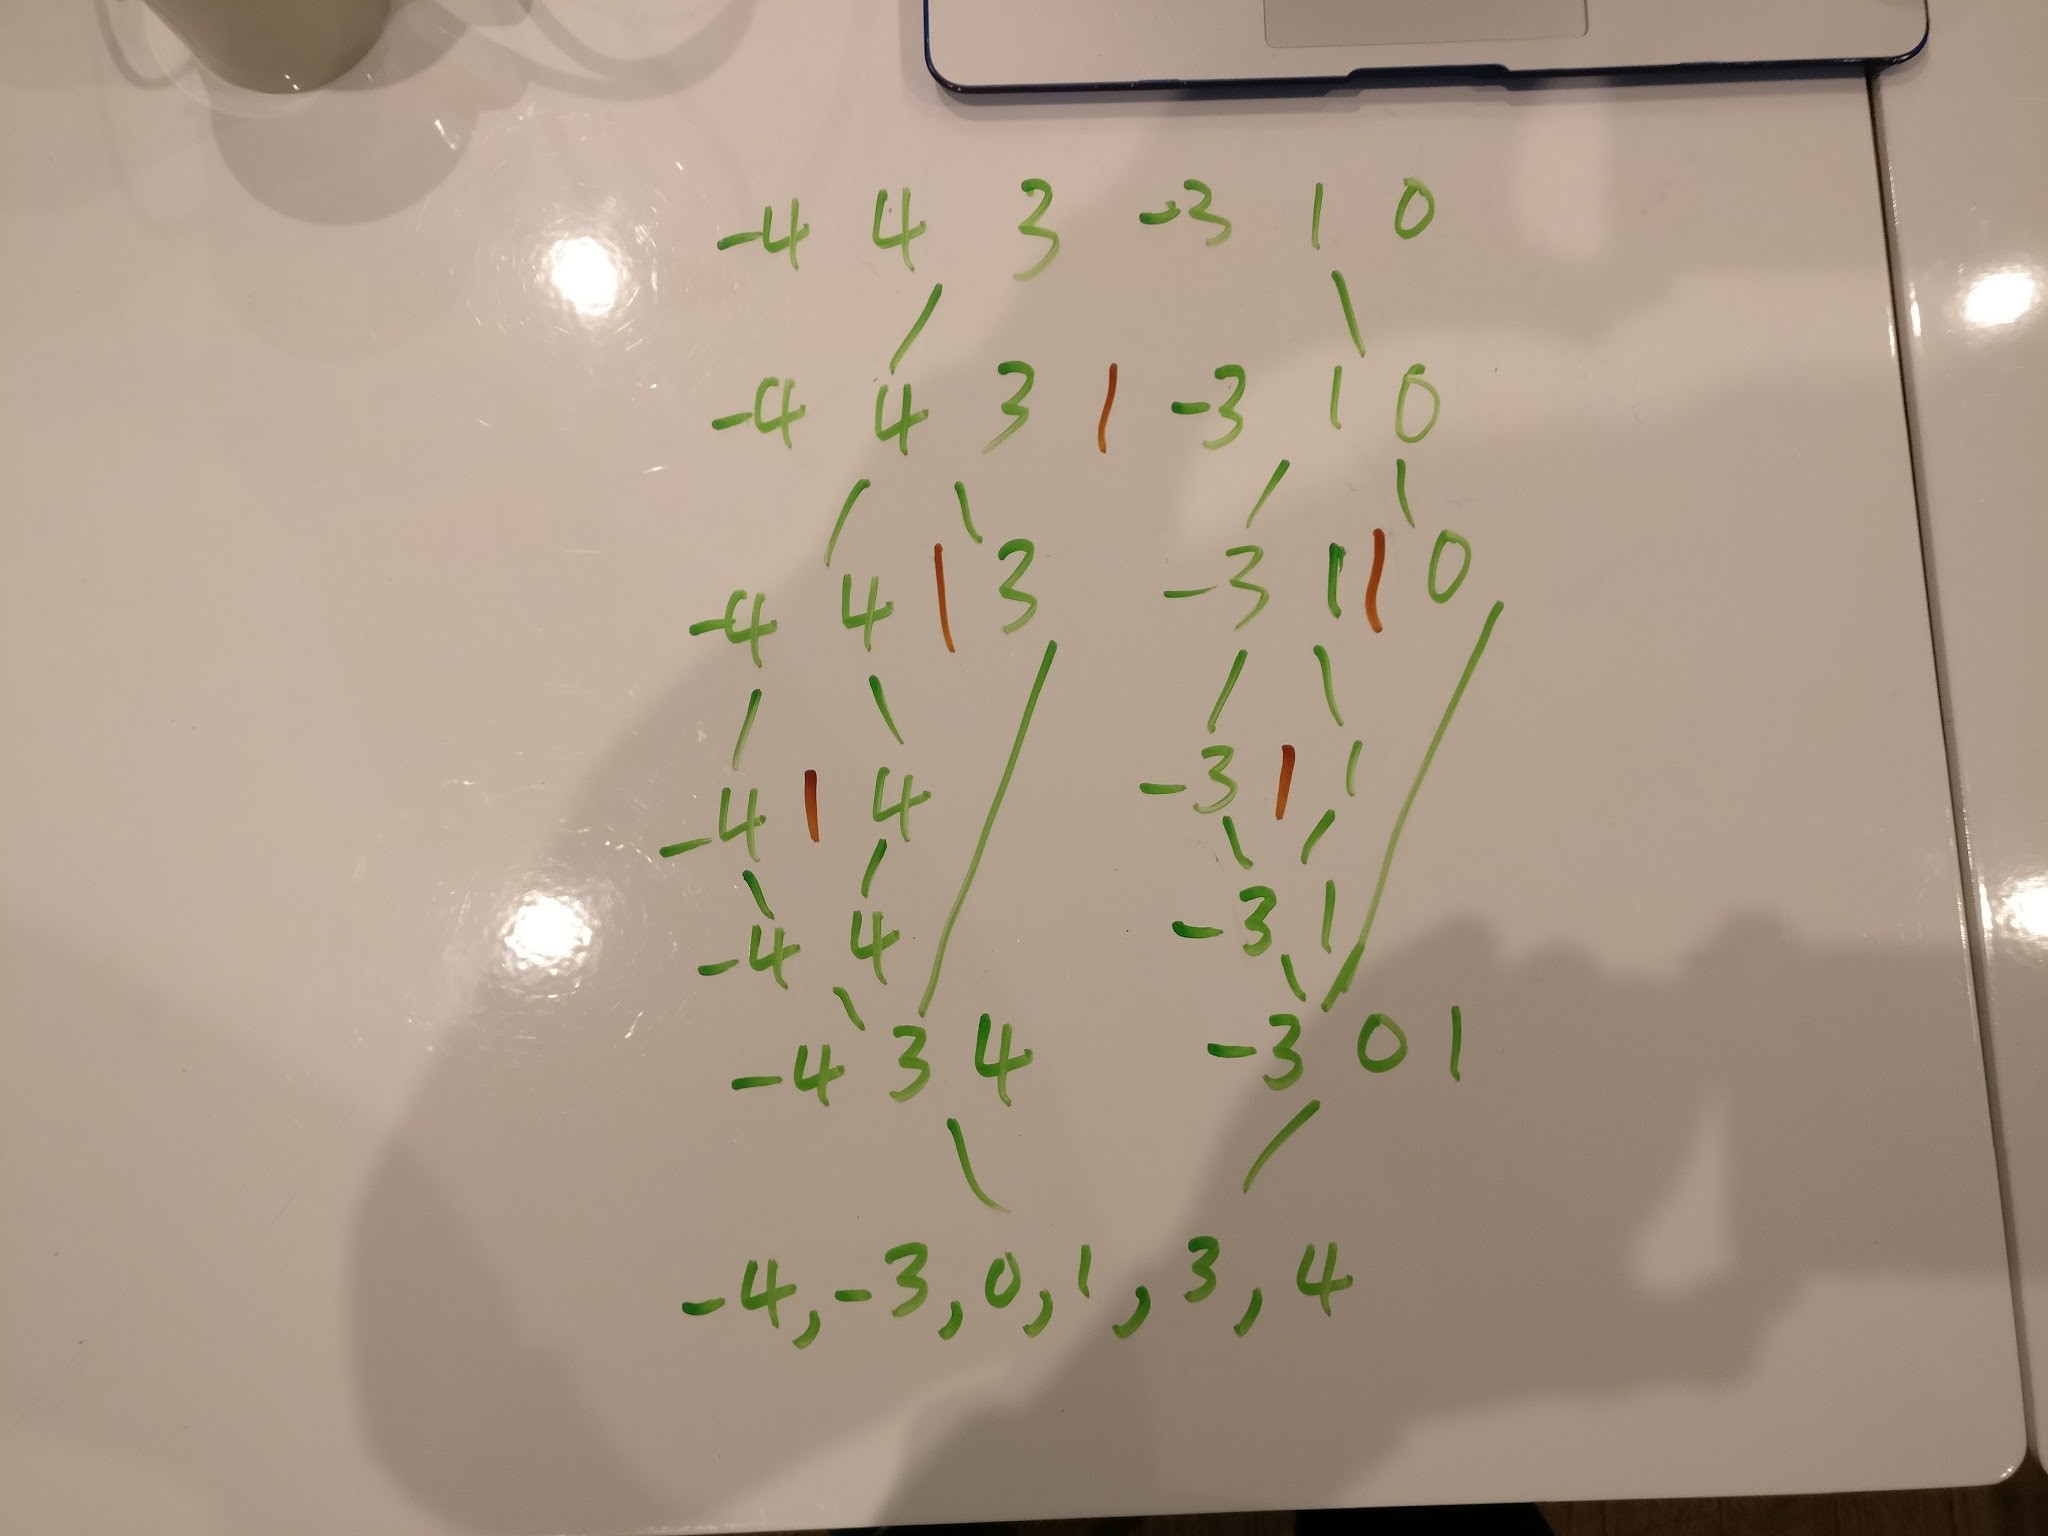 -4 4 3 -3 1 0
-4 4 3 | -3 1 0
-4 4 | 3 -3 1 | 0
-4 | 4 -3 | 1
-4 4 -3 1
-4 3 4 -3 0 1
-4, -3, 0, 1, 3, 4